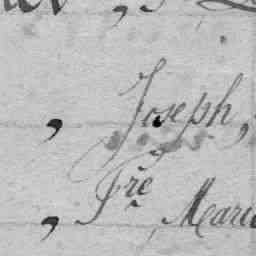 , Joseph,
, Fre, Marie